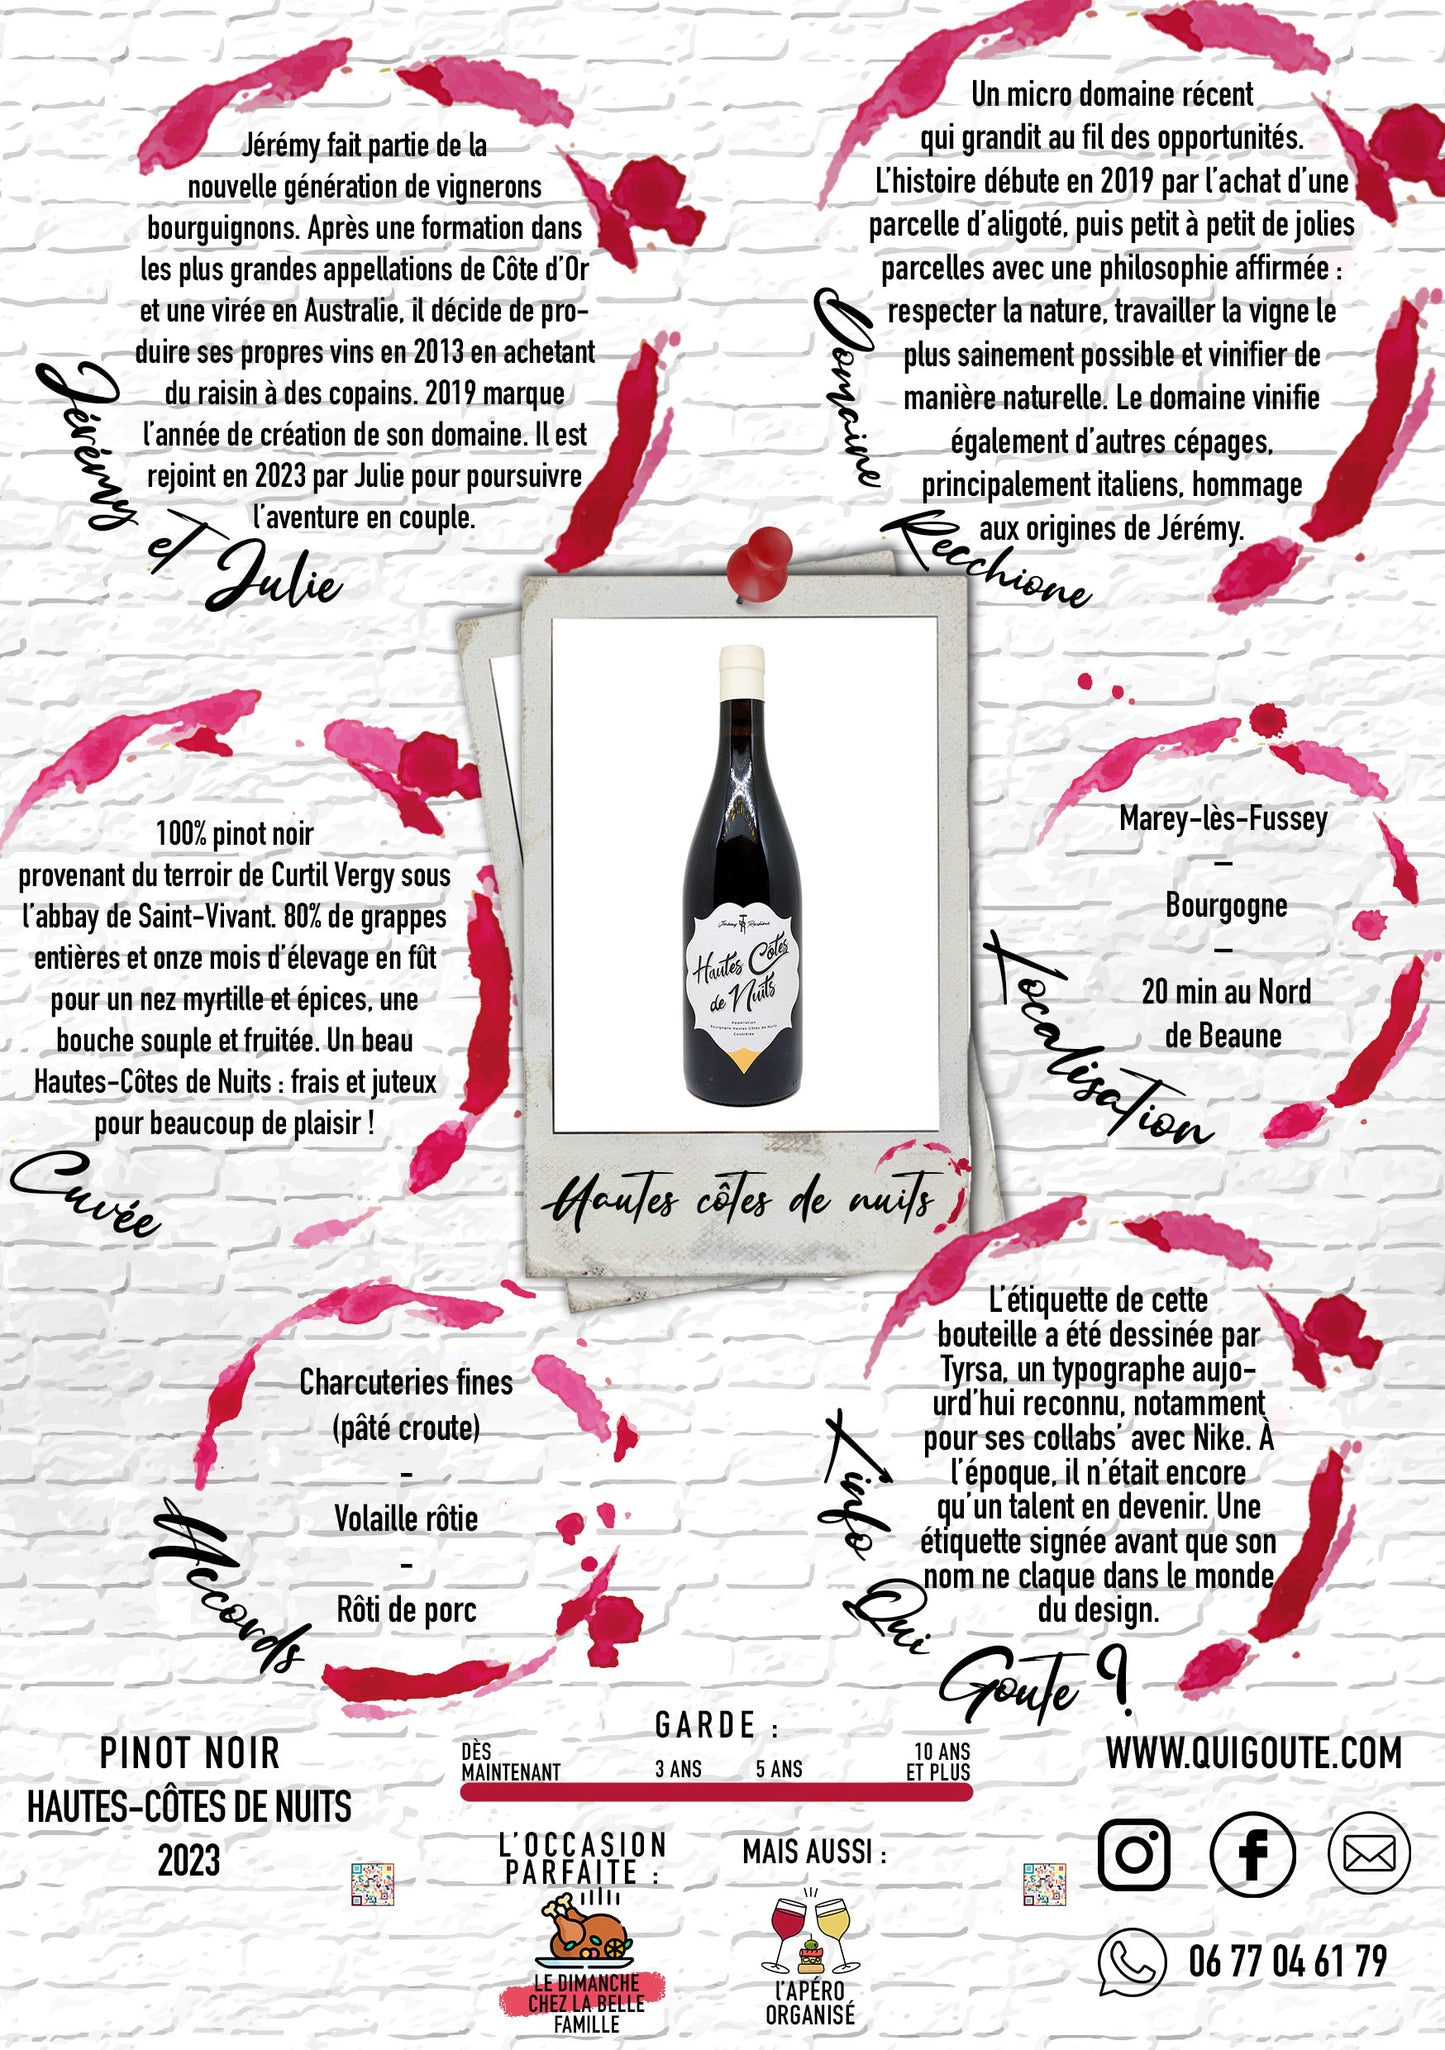 Jérémy fait partie de la
nouvelle génération de vignerons
bourguignons. Après une formation dans
les plus grandes appellations de Côte d'Or
et une virée en Australie, il décide de pro-
duire ses propres vins en 2013 en achetant
du raisin à des copains. 2019 marque
l'année de création de son domaine. Il est
rejoint en 2023 par Julie pour poursuivre
l'aventure en couple.
Jérémy et Julie
Un micro domaine récent
qui grandit au fil des opportunités.
L'histoire débute en 2019 par l'achat d'une
parcelle d'aligoté, puis petit à petit de jolies
parcelles avec une philosophie affirmée :
respecter la nature, travailler la vigne le
plus sainement possible et vinifier de
manière naturelle. Le domaine vinifie
également d'autres cépages,
principalement italiens, hommage
aux origines de Jérémy.
Domaine Recchione
100% pinot noir
provenant du terroir de Curtil Vergy sous
l'abbay de Saint-Vivant. 80% de grappes
entières et onze mois d'élevage en fût
pour un nez myrtille et épices, une
bouche souple et fruitée. Un beau
Hautes-Côtes de Nuits : frais et juteux
pour beaucoup de plaisir !
Cuvée
Jérémy Recchione
Hautes Côtes
de Nuits
Appellation
Bourgogne Hautes Côtes de Nuits
Contrôlée
Hautes côtes de nuits
Marey-lès-Fussey
–
Bourgogne
–
20 min au Nord
de Beaune
Localisation
Charcuteries fines
(pâté croute)
-
Volaille rôtie
-
Rôti de porc
Accords
L'étiquette de cette
bouteille a été dessinée par
Tyrsa, un typographe aujo-
urd'hui reconnu, notamment
pour ses collabs' avec Nike. À
l'époque, il n'était encore
qu'un talent en devenir. Une
étiquette signée avant que son
nom ne claque dans le monde
du design.
L'info Qui Goute ?
PINOT NOIR
HAUTES-CÔTES DE NUITS
2023
GARDE :
DÈS
MAINTENANT
3 ANS
5 ANS
10 ANS
ET PLUS
L'OCCASION
PARFAITE :
LE DIMANCHE
CHEZ LA BELLE
FAMILLE
MAIS AUSSI :
L'APÉRO
ORGANISÉ
WWW.QUIGOUTE.COM
06 77 04 61 79